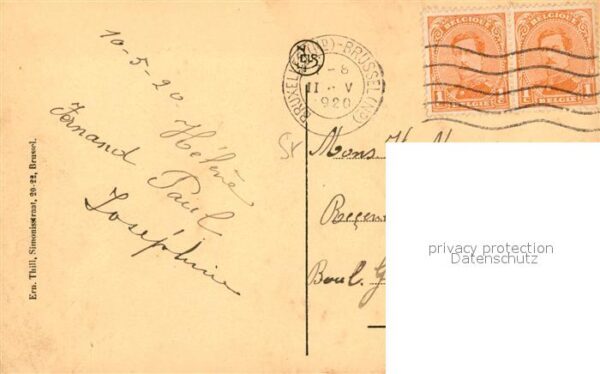 10-5-20
Hélène
Fernand Paul
Joséphine
Ern. Thill, Simonisstraat, 20-22, Brussel.
BRUXELLES (ND)-BRUSSEL (ND)
-8
11 - V
1920
BELGIQUE
1c 1c
BELGIË
BELGIQUE
1c 1c
BELGIË
Mons
Boul. G
privacy protection
Datenschutz